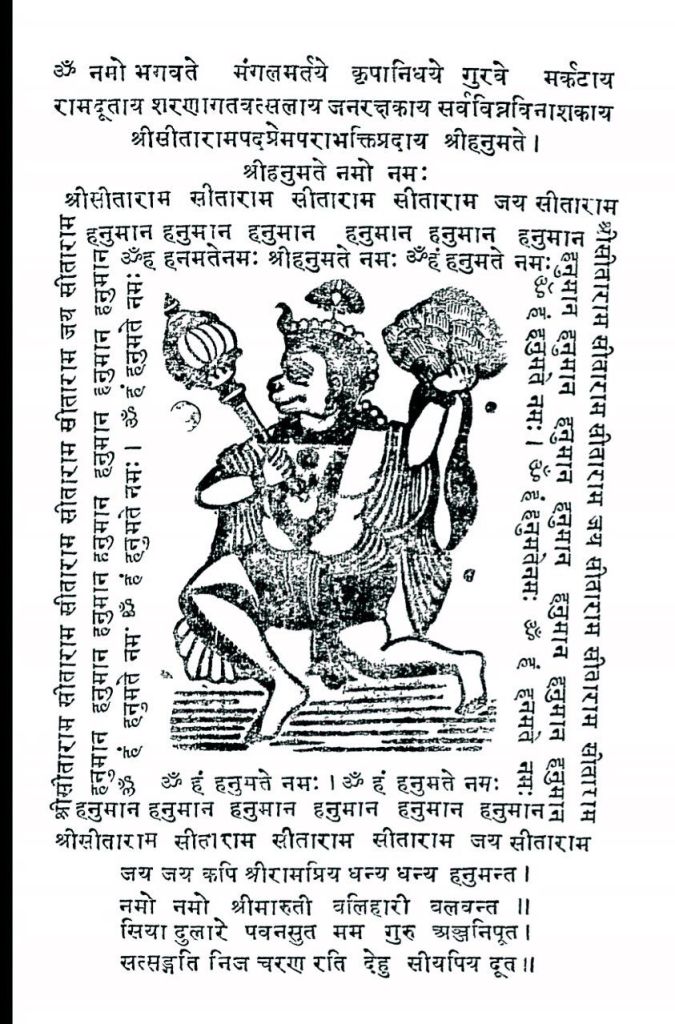 ॐ नमो भगवते मंगलमर्तये कृपानिधये गुरवे मर्कटाय
रामदूताय शरणागतवत्सलाय जनरक्षकाय सर्वविघ्नविनाशकाय
श्रीसीतारामपदप्रेमपराभक्तिप्रदाय श्रीहनुमते।
श्रीहनुमते नमो नमः
श्रीसीताराम सीताराम सीताराम सीताराम जय सीताराम
हनुमान हनुमान हनुमान हनुमान हनुमान हनुमान
ॐहं हनमतेनमः श्रीहनुमते नमः ॐहं हनुमते नमः
श्रीसीताराम सीताराम सीताराम सीताराम जय सीताराम
हनुमान हनुमान हनुमान हनुमान हनुमान हनुमान
ॐ हं हनुमते नमः ॐ हं हनुमते नमः। ॐ हं हनुमते नमः।
ॐ हं हनुमते नमः। ॐ हं हनुमतेनमः ॐ हं हनमते नमः
हनुमान हनुमान हनुमान हनुमान हनुमान हनुमान हनुमान
श्रीसीताराम सीताराम सीताराम जय सीताराम सीताराम सीताराम
ॐ हं हनुमते नमः। ॐ हं हनुमते नमः
हनुमान हनुमान हनुमान हनुमान हनुमान हनुमान
श्रीसीताराम सीताराम सीताराम सीताराम जय सीताराम
जय जय कपि श्रीरामप्रिय धन्य धन्य हनुमन्त।
नमो नमो श्रीमारुती बलिहारी बलवन्त ॥
सिया दुलारे पवनसुत मम गुरु अञ्जनिपूत।
सत्सङ्गति निज चरण रति देहु सीयपिय दूत॥